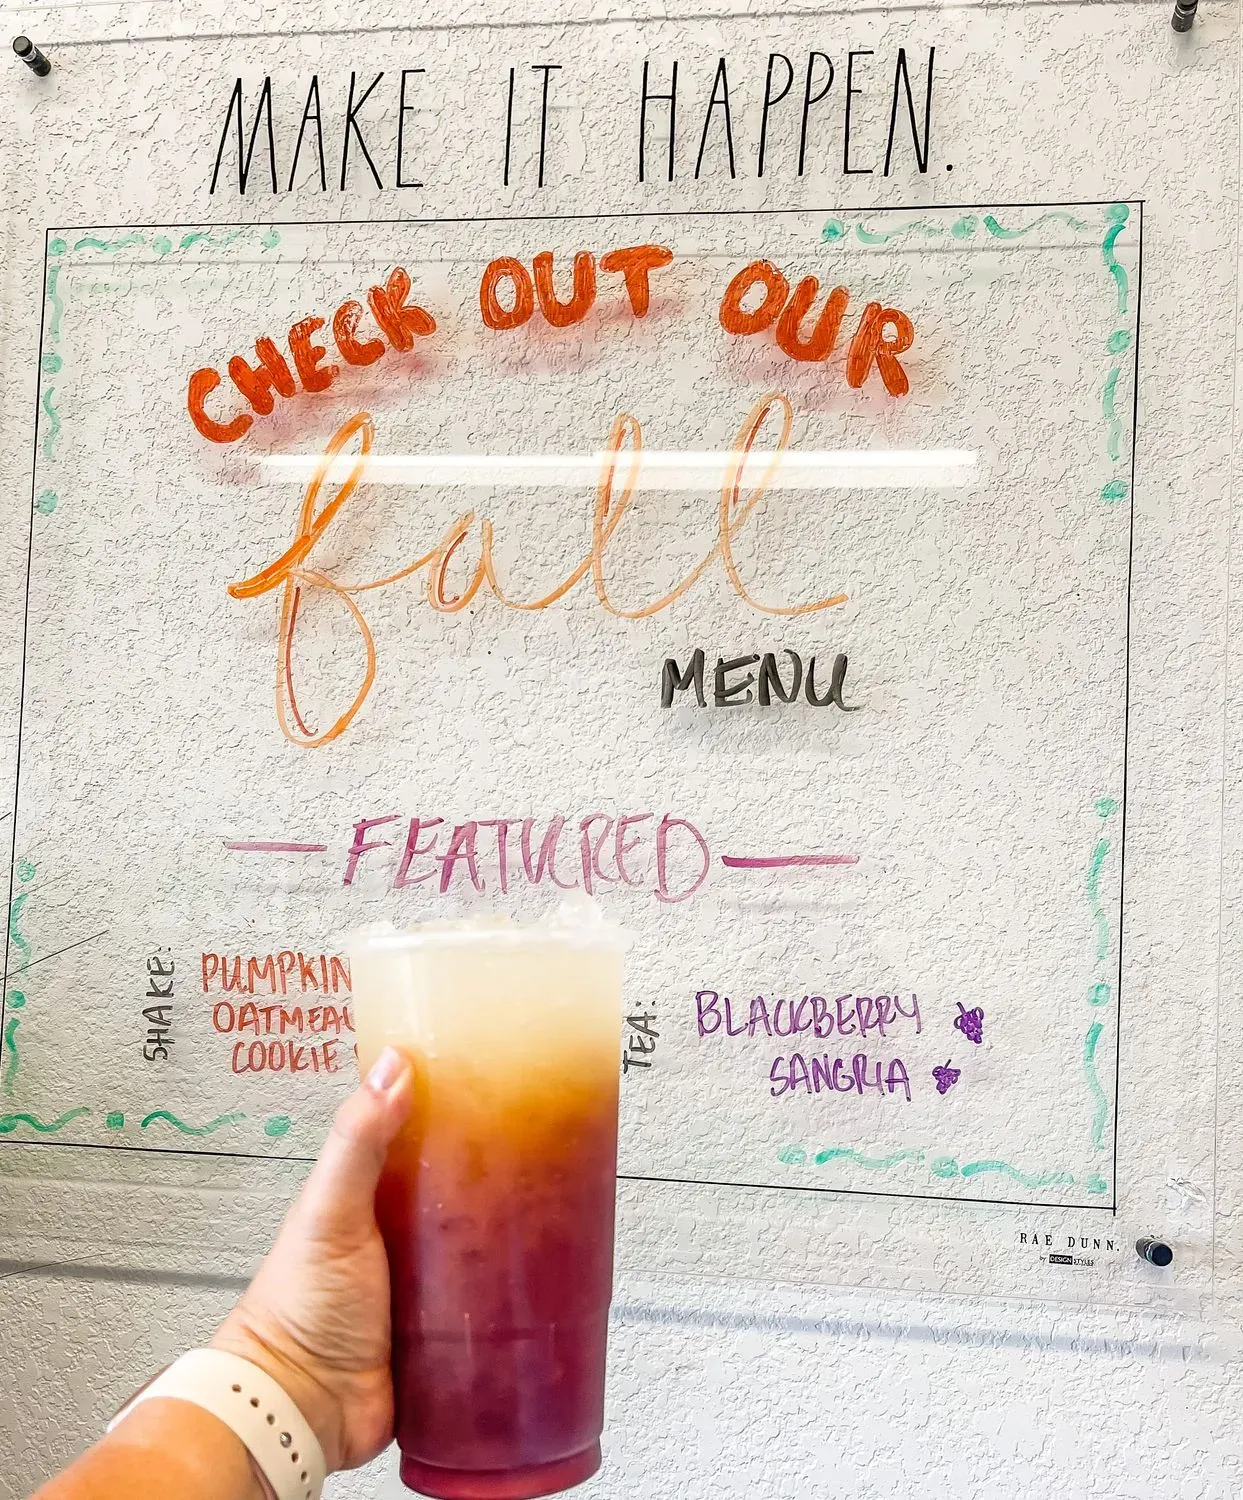 MAKE IT HAPPEN.
CHECK OUT OUR
fall
MENU
FEATURED
SHAKE:
PUMPKIN
OATMEAL
COOKIE
TEA:
BLACKBERRY
SANGRIA
RAE DUNN.
by DESIGN STYLES